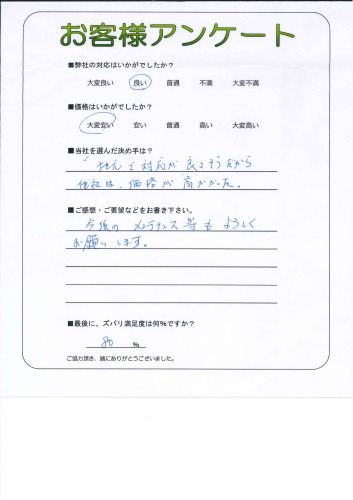 お客様アンケート
■弊社の対応はいかがでしたか?
大変良い 良い 普通 不満 大変不満
■価格はいかがでしたか?
大変安い 安い 普通 高い 大変高い
■当社を選んだ決め手は?
地元で対応が良さそうだから
他社は、価格が高かった。
■ご感想・ご要望などをお書き下さい。
今後のメンテナンス等もよろしく
お願いします。
■最後に、ズバリ満足度は何%ですか?
80 %
ご協力頂き、誠にありがとうございました。